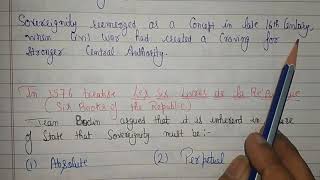 Sovereignity reemerged as a Concept in late 16th Century
when Civil War had created a Craving for
Stronger Central Authority.
In 1576 treatise Les Six Livres de la République
(Six Books of the Republic)
Jean Bodin argued that it is inherent in
of State that Sovereignity must be:-
(1) Absolute (2) Perpetual